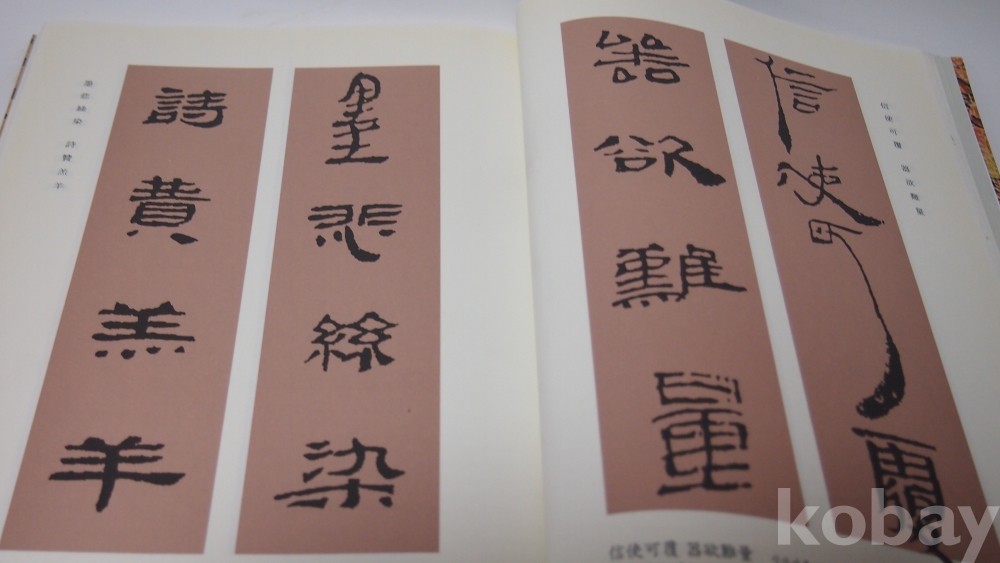 信使可覆
器欲難量
信使可覆 器欲難量
信使可覆 器欲難量
墨悲絲染
詩贊羔羊
墨悲絲染 詩贊羔羊
kobay